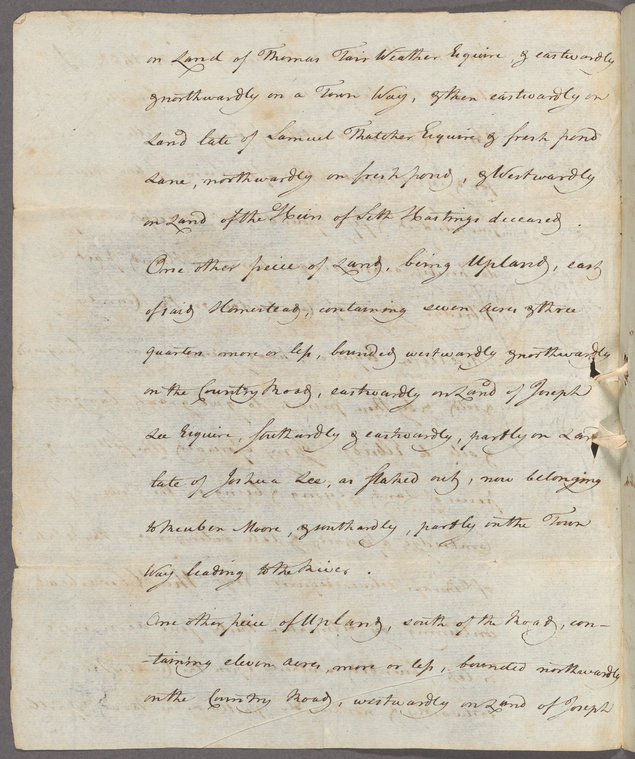 on Land of Thomas Fair Weather Esquire & eastwardly
& northwardly on a Town Way, & then eastwardly on
Land late of Samuel Thatcher Esquire & fresh pond
Lane, northwardly on fresh pond, & Westwardly
on Land of the Heirs of Seth Hastings deceased.
One other peice of Land, being Upland, east
of said Homestead, containing seven Acres & three
quarters more or less, bounded westwardly & northwardly
on the Country Road, eastwardly on Land of Joseph
Lee Esquire, southardly & eastwardly, partly on Land
late of Joshua Lee, as staked out, now belonging
to Reuben Moore, & southardly, partly on the Town
Way leading to the River.
One other peice of Upland, south of the Road, con-
-taining eleven Acres, more or less, bounded northwardly
on the Country Road, westwardly on Land of Joseph